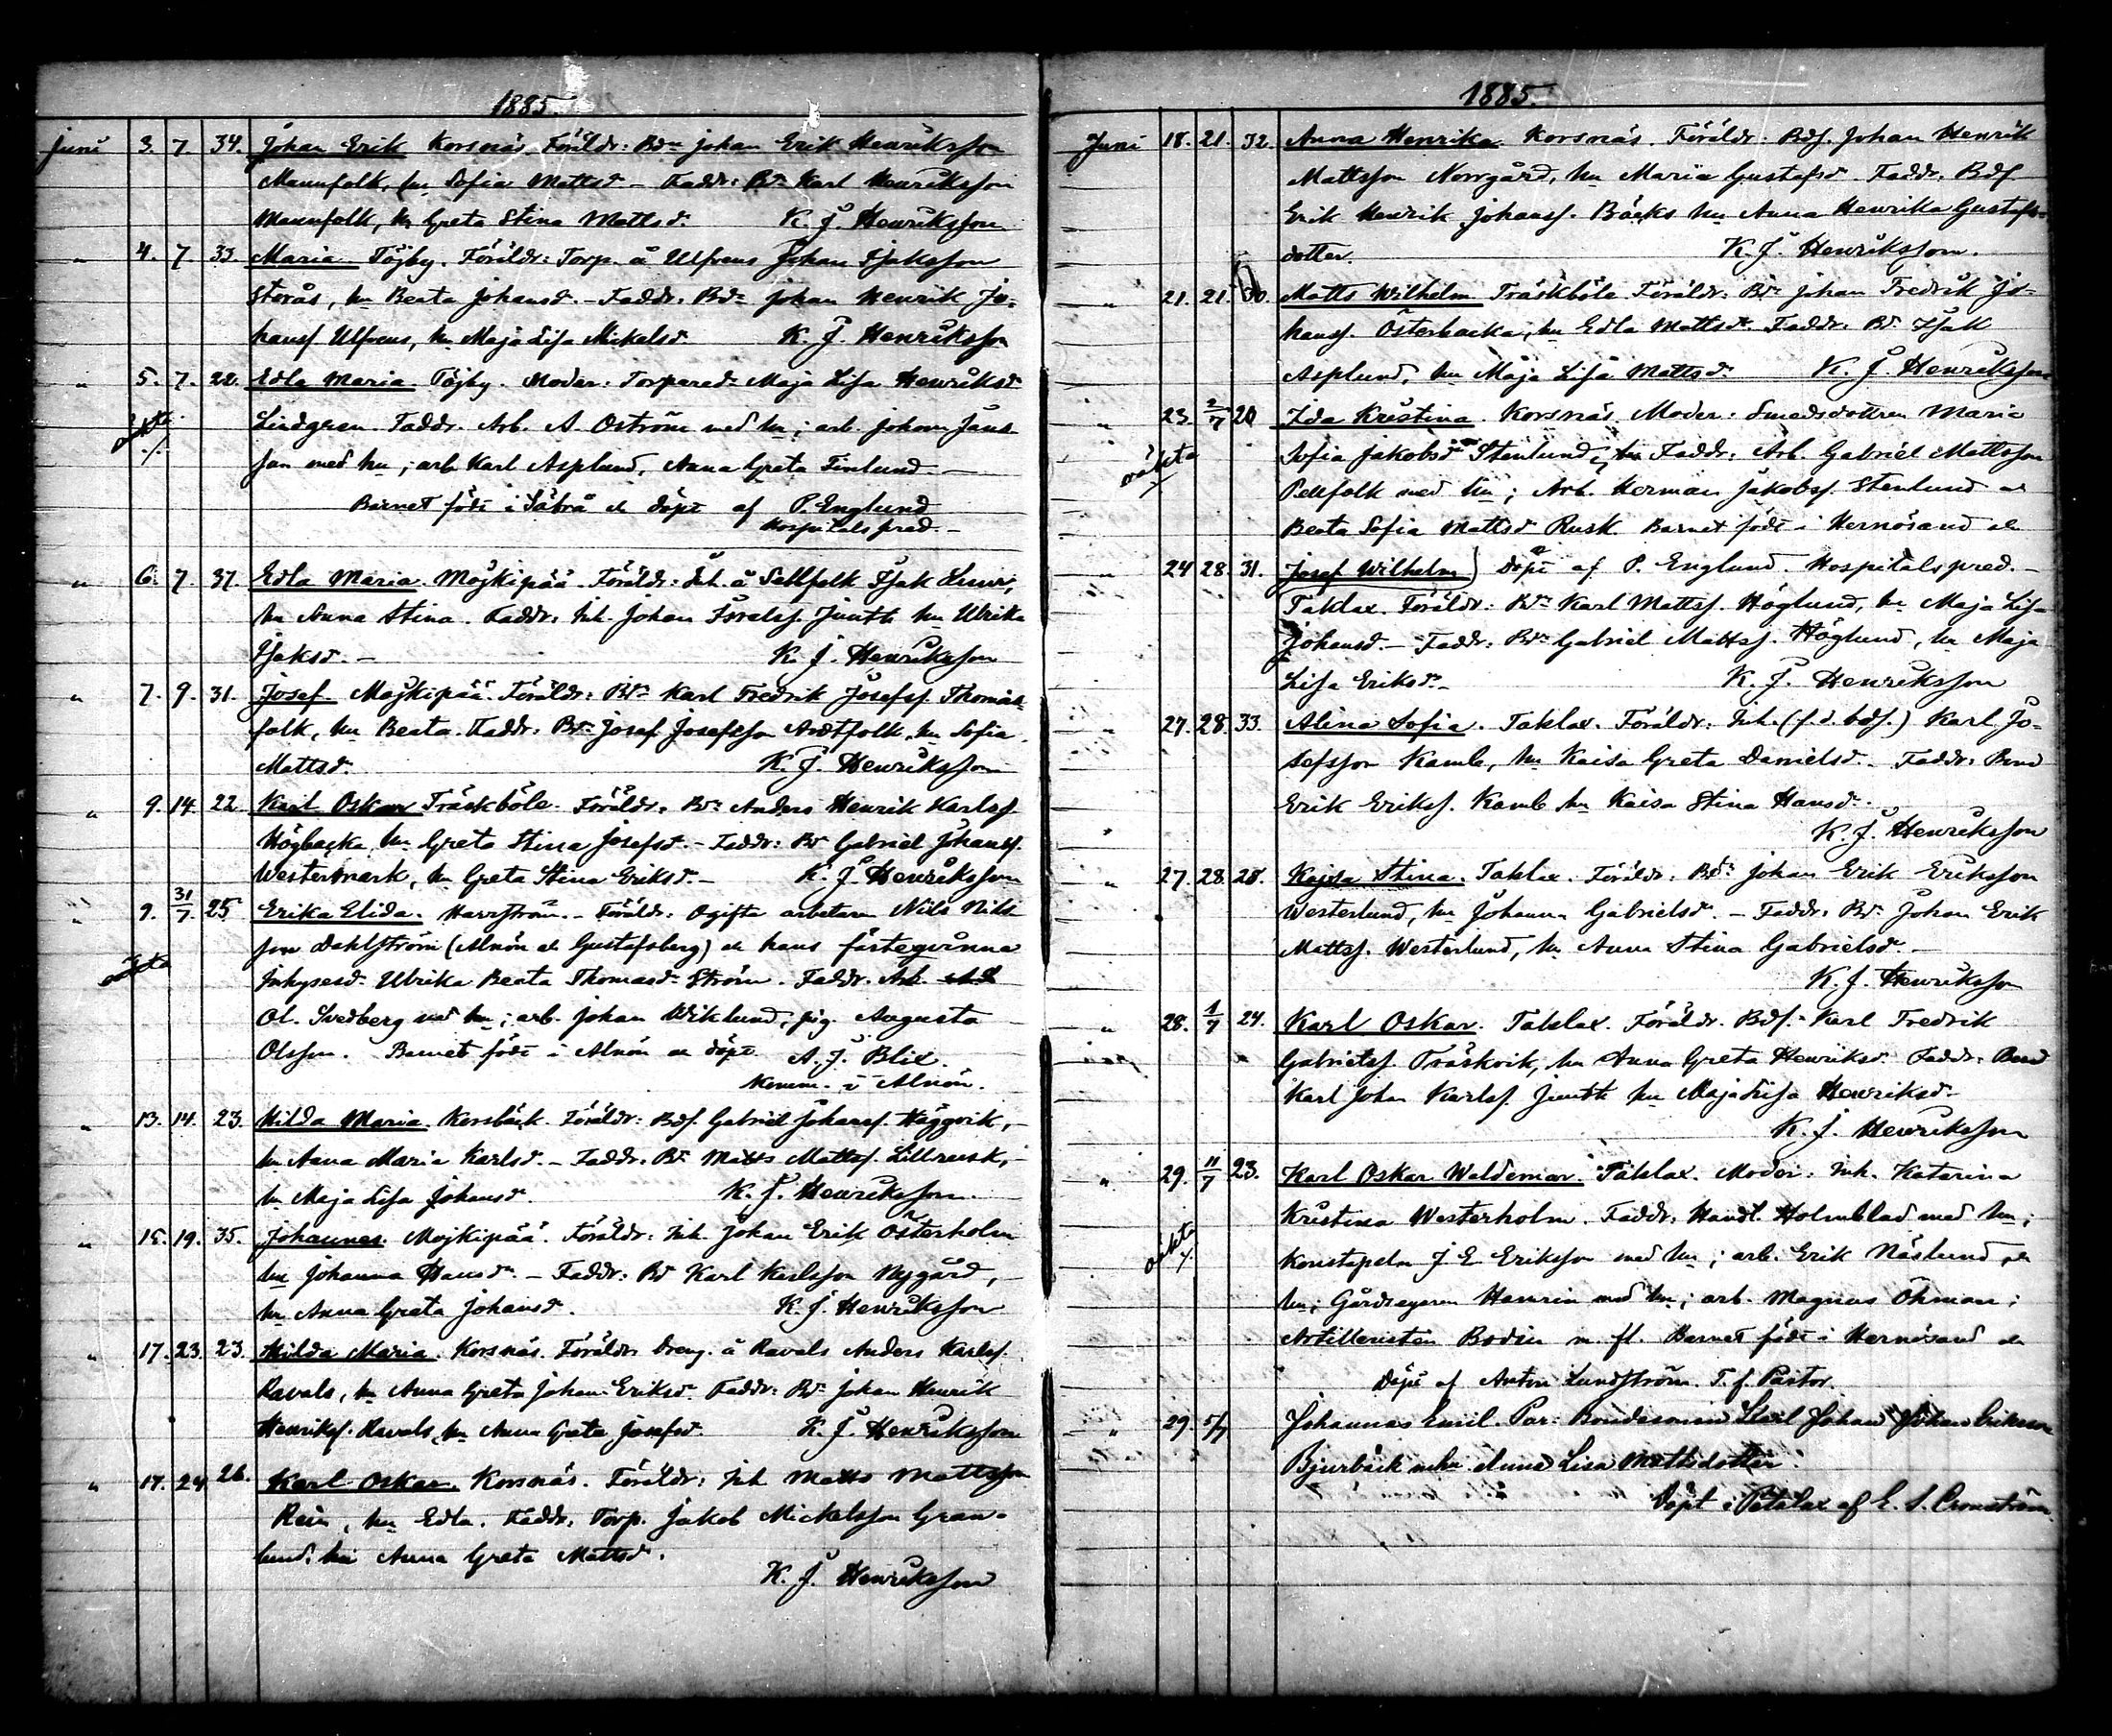 1885.
Juni 3. 7. 34. Johan Erik Korsnäs. Föräldr: Bdn Johan Erik Henriksson
Mannfolk, hu Sofia Mattsd. – Faddr: Bd. Karl Henriksson
Mannfolk, hu Greta Stina Mattsd. K. J. Henriksson
" 4. 7. 33 Maria Töjby. Föräldr: Torp. å Ulfvens Johan Isaksson
Storås, hu Beata Johansd. – Faddr: Bdn Johan Henrik Jo-
hanss Ulfvens, hu Maja Lisa Mickelsd. K. J. Henriksson
" 5. 7. 22. Edla Maria. Töjby. Moder: Torpared. Maja Lisa Henriksd
oäkta Lindgren. Faddr. Arb. A. Oström med hu; arb. Johan Jans-
son med hu; arb Karl Asplund, Anna Greta Finlund –
Barnet födt i Säbrå o döpt af P. Englund
Hospitalspred. –
" 6. 7. 37. Edla Maria. Mojkipää. Föräldr: Inh. å Sellfolk Isak
hu Anna Stina. Faddr: Inh. Johan Israelss. Junth hu Ulrika
Isaksd. – K. J. Henriksson
" 7. 9. 31. Josef. Mojkipää. Föräldr: Bdn Karl Fredrik Josefss. Thomas-
folk, hu Beata. Faddr: Bdn Josef Josefsson hu Sofia
Mattsd. K. J. Henriksson
" 9. 14. 22. Karl Oskar Träskböle. Föräldr: Bdn Anders Henrik Karlss.
Högbacka, hu Greta Stina Josefsd. – Faddr: Bd Gabriel Johanss.
Westermark, hu Greta Stina Eriksd. – K. J. Henriksson
" 9. 31/7. 25 Erika Elida. Harrström. – Föräldr: Ogifte arbetaren Nils Nils-
son Dahlström (Alnön o Gustafsberg) o hans fästeqvinna
oäkta Inhysesd. Ulrika Beata Thomasd. Ström. Faddr. Arb.
Ol. Svedberg med hu; arb. Johan Wiklund, pig. Augusta
Olsson. Barnet födt i Alnön o döpt A. J. Blix.
Komm. i Alnön.
" 13. 14. 23. Hilda Maria. Korsbäck. Föräldr: Bds. Gabriel Johanss. Häggvik,
hu Anna Maria Karlsd. – Faddr: Bd. Matts Mattss. Lillrusk,
hu Maja Lisa Johansd. K. J. Henriksson.
" 15. 19. 35. Johannes. Mojkipää. Föräldr: Inh. Johan Erik Österholm
hu Johanna Hansd. – Faddr: Bd Karl Karlsson Nygård,
hu Anna Greta Johansd. K. J. Henriksson
" 17. 23. 23. Hilda Maria. Korsnäs. Föräldr Dreng. å Ravals Anders Karlss.
Ravals, hu Anna Greta Johan Eriksd. Faddr: Bdn Johan Henrik
Henrikss. Ravals, hu Anna Greta Josefsd. K. J. Henriksson
" 17. 24 26. Karl Oskar. Korsnäs. Föräldr: Inh Matts Mattsson
Rein, hu Edla. Faddr: Torp. Jakob Mickelsson Gran-
lund. hu Anna Greta Mattsd.
K. J. Henriksson
1885.
Juni 18. 21. 32. Anna Henrika. Korsnäs. Föräldr: Bds. Johan Henrik
Mattsson Norrgård, hu Maria Gustafsd. Faddr: Bds
Erik Henrik Johanss. Bäcks hu Anna Henrika Gustafs-
dotter. K. J. Henriksson.
" 21. 21 30. Matts Wilhelm Träskböle Föräldr: Bdn Johan Fredrik Jo-
hanss. Österbacka, hu Edla Mattsd. Faddr: Bd. Isak
Asplund, hu Maja Lisa Mattsd. K. J. Henriksson
" 23. 2/7 20 Ida Kristina. Korsnäs. Moder: Smedsdottren Maria
oäkta Sofia Jakobsd Stenlund, Faddr: Arb. Gabriel Mattsson
Pellfolk med hu; Arb. Herman Jakobss. Stenlund o
Beata Sofia Mattsd. Rusk. Barnet födt i Hernösand o
" 24 28. 31. Josef Wilhelm) Döpt af P. Englund. Hospitalspred. –
Taklax. Föräldr: Bdn Karl Mattss. Höglund, hu Maja Lisa
Johansd. – Faddr: Bdn Gabriel Mattss. Höglund, hu Maja
Lisa Eriksd. – K. J. Henriksson
" 27. 28. 33. Alina Sofia. Taklax. Föräldr: Inh. (f.d. bds.) Karl Jo-
sefsson Kamb, hu Kaisa Greta Danielsd. Faddr: Bond
Erik Erikss. Kamb hu Kaisa Stina Hansd.
K. J. Henriksson
" 27. 28. 28. Kajsa Stina. Taklax. Föräldr: Bdn Johan Erik Eriksson
Westerlund, hu Johanna Gabrielsd. – Faddr: Bd. Johan Erik
Mattss. Westerlund, hu Anna Stina Gabrielsd. –
K. J. Henriksson
" 28. 1/7 24. Karl Oskar. Taklax. Föräldr. Bds. Karl Fredrik
Gabrielss. Träskvik, hu Anna Greta Henriksd. Faddr: Bond
Karl Johan Karlss. Junth hu Maja Lisa Henriksd.
K. J. Henriksson
" 29. 11/7 23. Karl Oskar Waldemar. Taklax. Moder: Inh. Katarina
Kristina Westerholm. Faddr: Handl. Holmblad med hu;
oäkta Konstapeln J E Eriksson med hu; arb. Erik Näslund, o
hu; Gårdsegaren Hamrin med hu; arb. Magnus Öhman;
Artilleristen Bodin m. fl. Barnet födt i Hernösand o
Döpt af Anton Lundström. T. f. Pastor.
" 29. 5/7 Johannes Emil. Par: Bondesonen Karl Johan Johan Eriksson
Bjurbäck o hu Anna Lisa Mattsdotter.
Döpt i Petalax af E. S. Cronström.